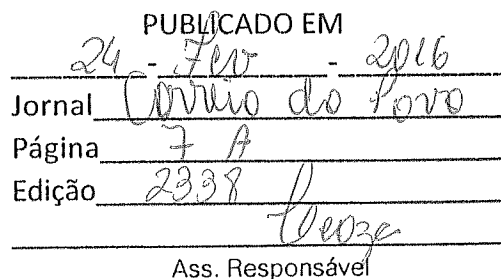 PUBLICADO EM
24 - Fev - 2016
Jornal Correio do Povo
Página 7 A
Edição 2338
Ass. Responsável